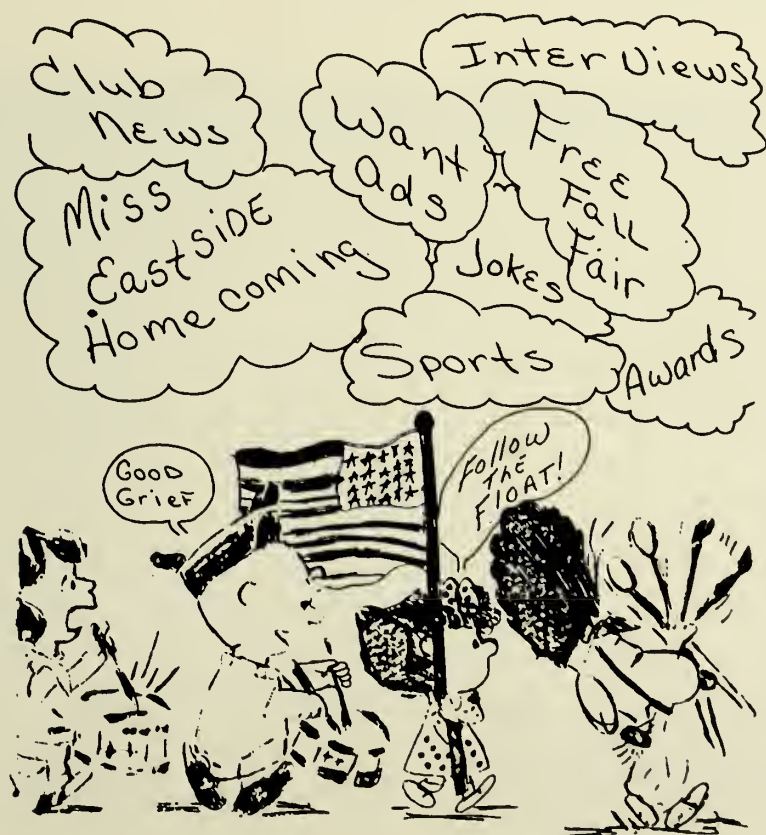 Club
News
InterViews
Want
Ads
Free
Fall
Fair
Miss
EastSIDE
Homecoming
Jokes
Sports
Awards
GOOD
GrieF
Follow
THE
FlOAT!